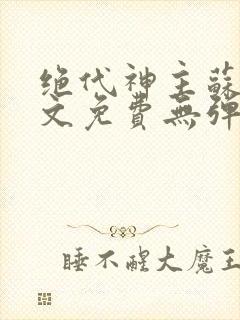 绝代神主蘇
文免費無彈
睡不醒大魔王